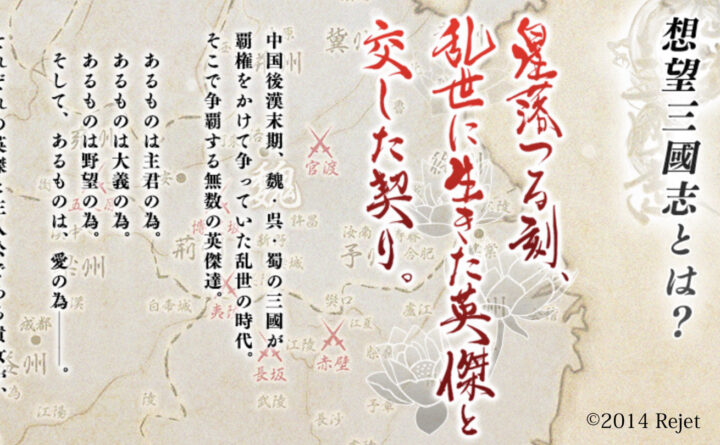 想望三國志とは?
星落つる刻、
乱世に生きた英傑と
交した契り。
中国後漢末期、魏・呉・蜀の三國が
覇権をかけて争っていた乱世の時代。
そこで争覇する無数の英傑達。
あるものは主君の為。
あるものは大義の為。
あるものは野望の為。
そして、あるものは、愛の為――。
冀
官渡
魏
許昌
新野
汝南
予州
合肥
建業
荊
夷
白帝城
樊口
江夏
盧江
江陵
赤壁
長坂
武陵
長沙
成都
江陽
©2014 Rejet